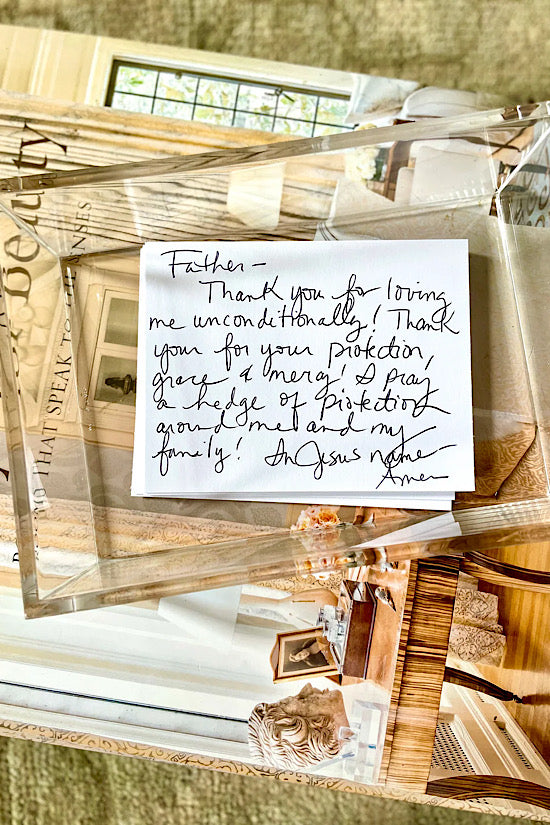 Father -
Thank you for loving
me unconditionally! Thank
your for your protection,
grace & mercy! I pray
a hedge of protection
around me and my
family! In Jesus name -
Amen
Beauty
THAT SPEAK TO THE SENSES